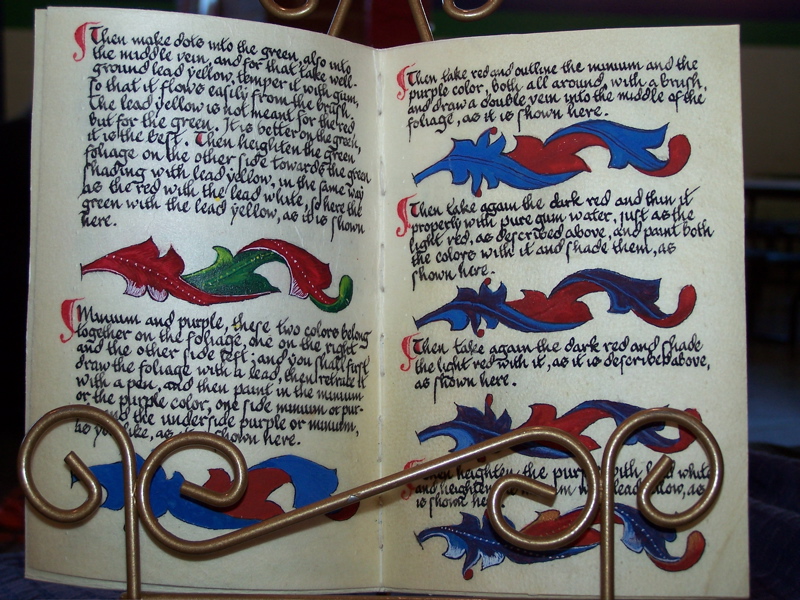 Then make dots into the green, also into
the middle vein, and for that take well-
ground lead yellow, temper it with gum,
so that it flows easily from the brush.
The lead yellow is not meant for the red
but for the green. It is better on the green,
it is the best. Then heighten the green
foliage on the other side towards the green
shading with lead yellow, in the same way
as the red with the lead white, so here the
green with the lead yellow, as it is shown
here.
Minium and purple, these two colors belong
together on the foliage, one on the right
and the other side left; and you shall first
draw the foliage with a lead, then retrace it
with a pen, and then paint in the minium
or the purple color, one side minium or pur-
and the underside purple or minium,
as you like, as shown here.
Then take red and outline the minium and the
purple color, both all around, with a brush,
and draw a double vein into the middle of the
foliage, as it is shown here.
Then take again the dark red and thin it
properly with pure gum water, just as the
light red, as described above, and paint both
the colors with it and shade them, as
shown here.
Then take again the dark red and shade
the light red with it, as it is described above,
as shown here.
Then heighten the purple with lead white
and heighten lead yellow, as
is shown